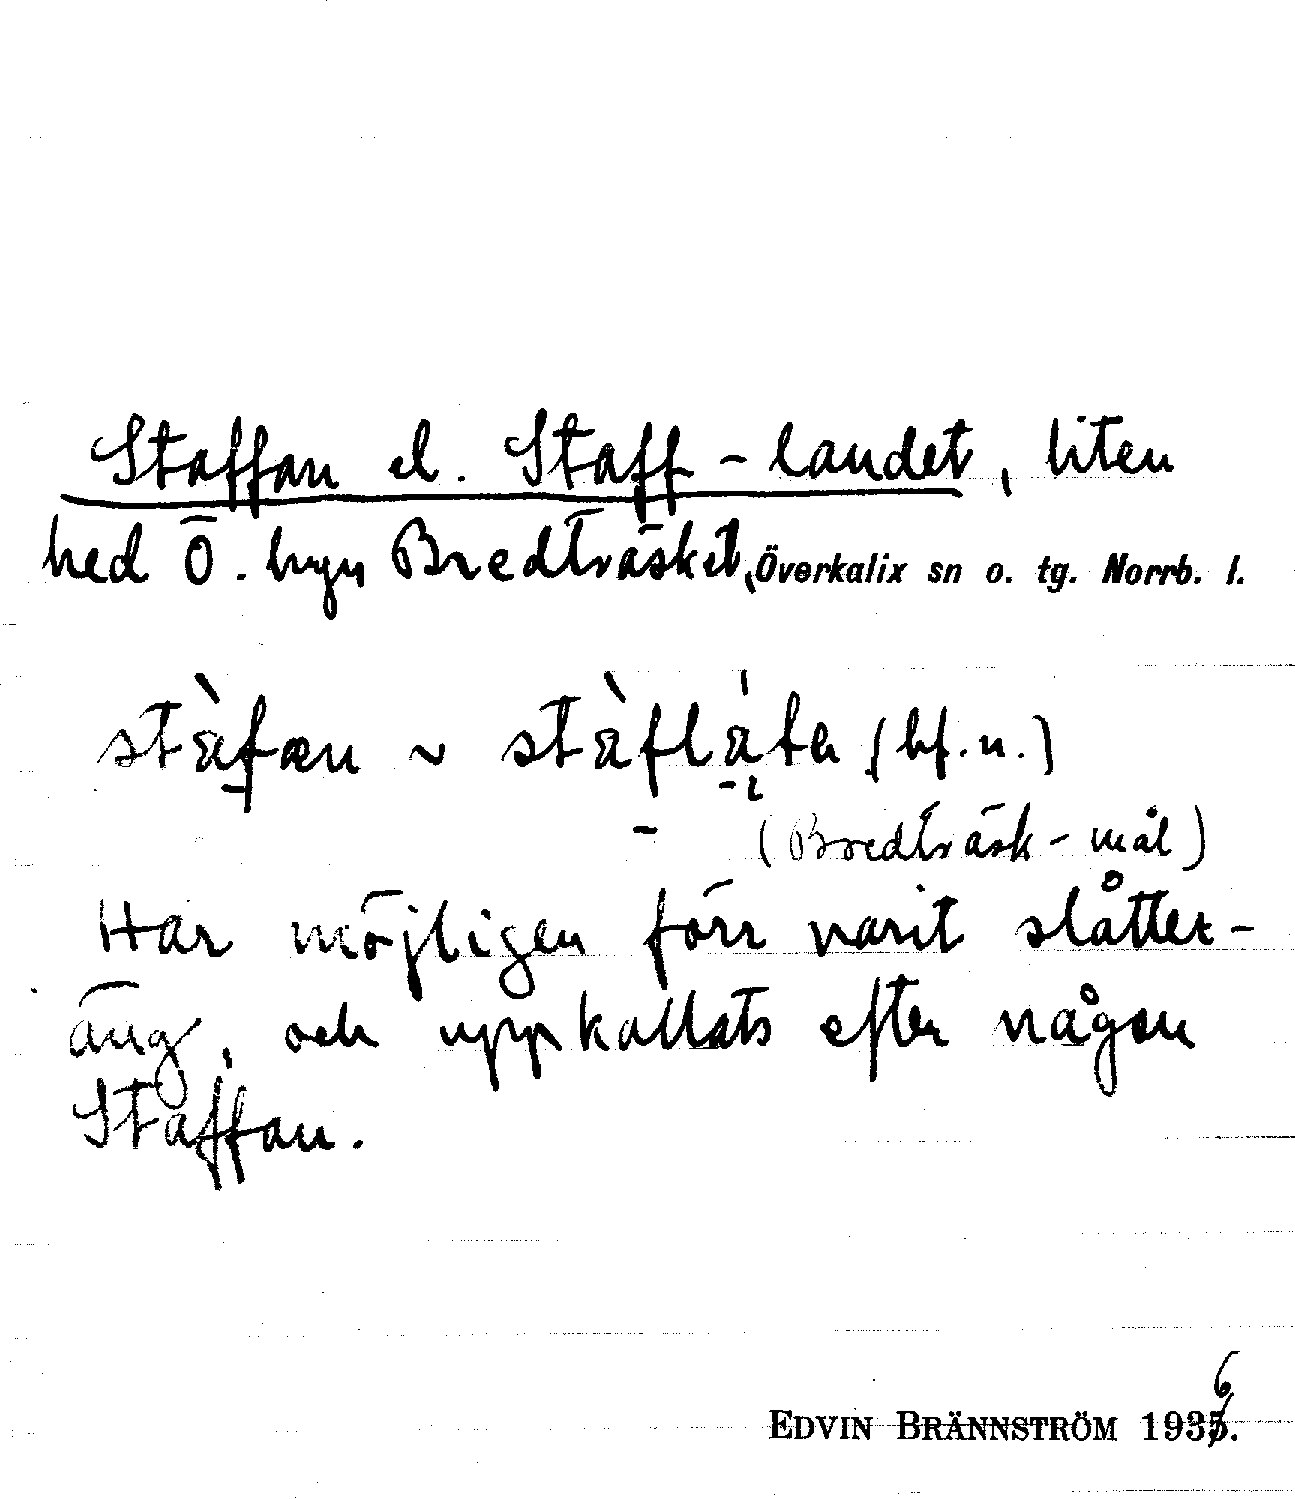 Staffan el. Staff-landet, liten
hed Ö. byn Bredträsket, Överkalix sn o. tg. Norrb. l.
stàfæn ~ stàflȧ́ta (bf.n.)
(Bredträsk-mål)
Har möjligen förr varit slåtter-
äng, och uppkallats efter någon
Staffan.
EDVIN BRÄNNSTRÖM 1936.